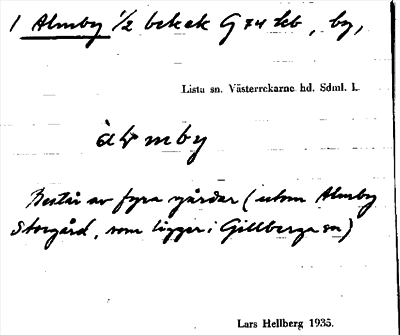 1 Almby 1/2 bek ek G 74 kb, by,
Lista sn. Västerrekarne hd. Sdml. l.
àl mby
Består av fyra gårdar (utom Almby
Storgård, som ligger i Gillberga sn)
Lars Hellberg 1935.